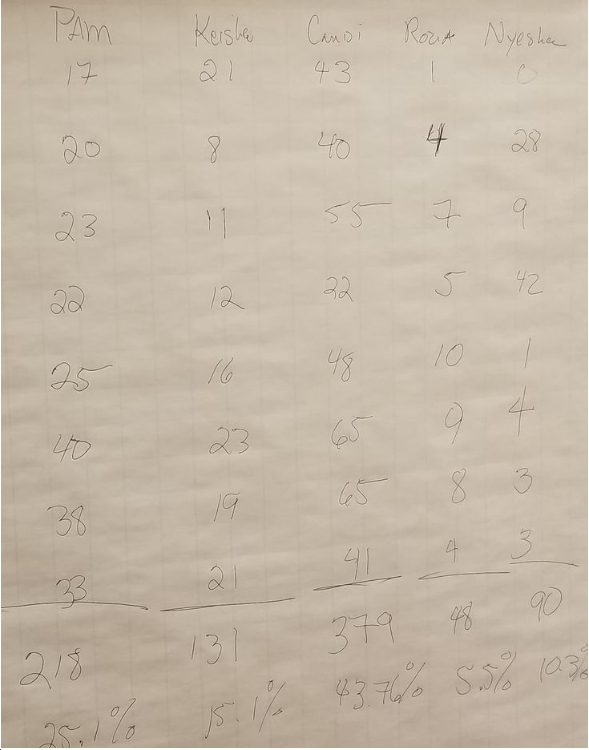 PAM Keisha Candi Rozia Nyesha
17 21 43 1 0
20 8 40 4 28
23 11 55 7 9
22 12 22 5 42
25 16 48 10 1
40 23 65 9 4
38 19 65 8 3
33 21 41 4 3
218 131 379 48 90
25.1% 15.1% 43.76% 5.5% 10.3%